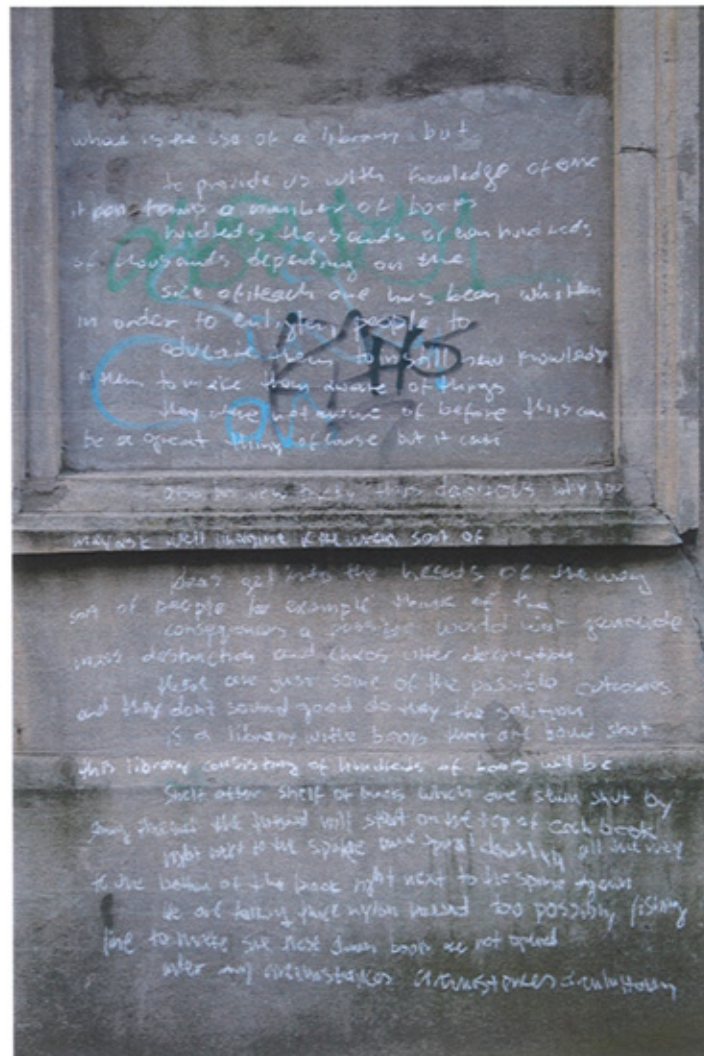 what is the use of a library but
to provide us with knowledge of one
it contains a number of books
hundreds thousands or even hundreds
of thousands depending on the
size of it each one has been written
in order to enlighten people to
educate them to instill new knowledge
in them to make them aware of things
they were not aware of before this can
be a great thing of course but it can
also be very very dangerous why you
may ask well imagine if the wrong sort of
ideas get into the heads of the wrong
sort of people for example think of the
consequences a possible world war genocide
mass destruction and chaos utter
these are just some of the possible outcomes
and they dont sound good do they the solution
is a library with books that are bound shut
this library consisting of hundreds of books will be
shelf after shelf of books which are sewn shut by
the thread will start on the top of each book
right next to the spine and all the way
to the bottom of the book right next to the spine again
we are talking nylon thread too possibly fishing
line to make sure these books are not opened
under any circumstances